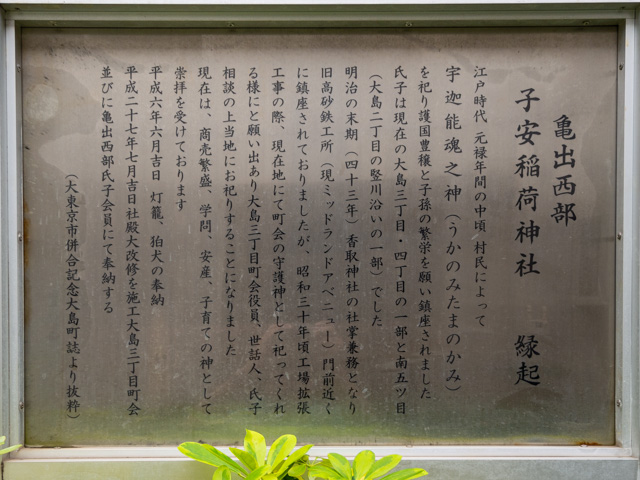 亀出西部
子安稲荷神社 縁起
江戸時代 元禄年間の中頃 村民によって
宇迦能魂之神（うかのみたまのかみ）
を祀り護国豊穣と子孫の繁栄を願い鎮座されました
氏子は現在の大島三丁目・四丁目の一部と南五ツ目
（大島二丁目の竪川沿いの一部）でした
明治の末期（四十三年）香取神社の社掌兼務となり
旧高砂鉄工所（現ミッドランドアベニュー）門前近く
に鎮座されておりましたが、昭和三十年頃工場拡張
工事の際、現在地にて町会の守護神として祀ってくれ
る様にと願い出あり大島三丁目町会役員、世話人、氏子
相談の上当地にお祀りすることになりました
現在は、商売繁盛、学問、安産、子育ての神として
崇拝を受けております
平成六年六月吉日 灯籠、狛犬の奉納
平成二十七年七月吉日社殿大改修を施工大島三丁目町会
並びに亀出西部氏子会員にて奉納する
（大東京市併合記念大島町誌より抜粋）